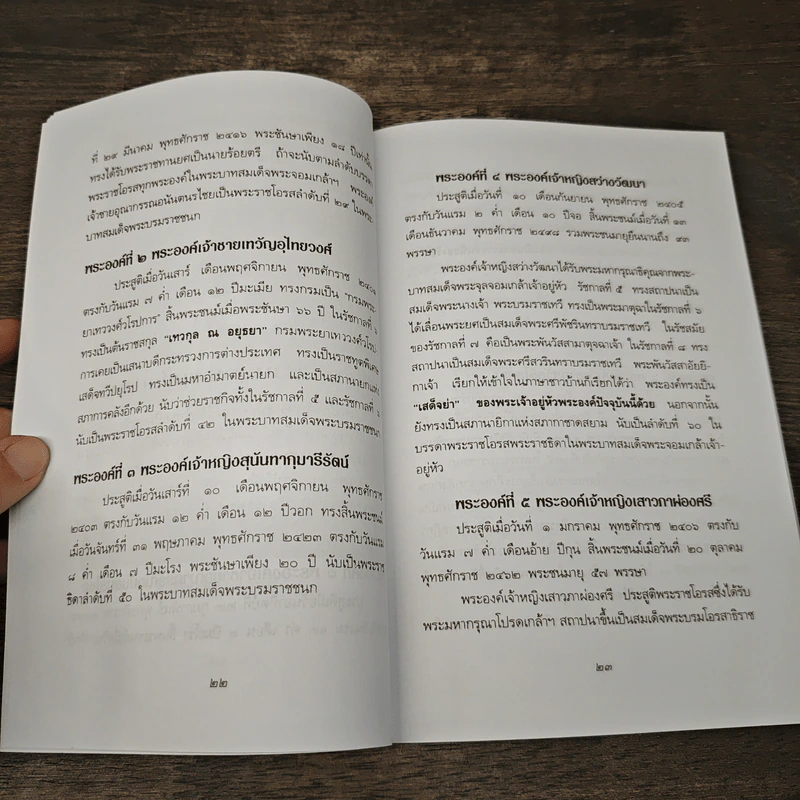 ที่ ๒๙ มีนาคม พุทธศักราช ๒๔๑๖ พระชันษาเพียง ๑๘ ปีเท่านั้น
ทรงได้รับพระราชทานยศเป็นนายร้อยตรี ถ้าจะนับตามลำดับบรรดา
พระราชโอรสทุกพระองค์ในพระบาทสมเด็จพระจอมเกล้าฯ พระองค์
เจ้าชายอุณากรรณอนันตนรไชยเป็นพระราชโอรสลำดับที่ ๒๙ ในพระ
บาทสมเด็จพระบรมราชชนก
พระองค์ที่ ๒ พระองค์เจ้าชายเทวัญอุไทยวงศ์
ประสูติเมื่อวันเสาร์ เดือนพฤศจิกายน พุทธศักราช
ตรงกับวันแรม ๗ ค่ำ เดือน ๑๒ ปีมะเมีย ทรงกรมเป็น "กรมพระ
ยาเทววงศ์วโรปการ" สิ้นพระชนม์เมื่อพระชันษา ๖๖ ปี ในรัชกาลที่
ทรงเป็นต้นราชสกุล "เทวกุล ณ อยุธยา" กรมพระยาเทววงศ์วโรป
การเคยเป็นเสนาบดีกระทรวงการต่างประเทศ ทรงเป็นราชทูตพิเศษ
เสด็จทวีปยุโรป ทรงเป็นมหาอำมาตย์นายก และเป็นสภานายกแห่ง
สภาการคลังอีกด้วย นับว่าช่วยราชกิจทั้งในรัชกาลที่ ๕ และรัชกาลที่
นับเป็นพระราชโอรสลำดับที่ ๔๒ ในพระบาทสมเด็จพระบรมราชชนก
พระองค์ที่ ๓ พระองค์เจ้าหญิงสุนันทากุมารีรัตน์
ประสูติเมื่อวันเสาร์ที่ ๑๐ เดือนพฤศจิกายน พุทธศักราช
๒๔๐๓ ตรงกับวันแรม ๑๒ ค่ำ เดือน ๑๒ ปีวอก ทรงสิ้นพระชนม์
เมื่อวันจันทร์ที่ ๓๑ พฤษภาคม พุทธศักราช ๒๔๒๓ ตรงกับวันแรม
๘ ค่ำ เดือน ๗ ปีมะโรง พระชันษาเพียง ๒๐ ปี นับเป็นพระราช
ธิดาลำดับที่ ๕๐ ในพระบาทสมเด็จพระบรมราชชนก
๒๒
พระองค์ที่ ๔ พระองค์เจ้าหญิงสว่างวัฒนา
ประสูติเมื่อวันที่ ๑๐ เดือนกันยายน พุทธศักราช ๒๔๐๕
ตรงกับวันแรม ๒ ค่ำ เดือน ๑๐ ปีจอ สิ้นพระชนม์เมื่อวันที่ ๑๓
เดือนธันวาคม พุทธศักราช ๒๔๙๘ รวมพระชนมายุยืนนานถึง ๙๓
พรรษา
พระองค์เจ้าหญิงสว่างวัฒนาได้รับพระมหากรุณาธิคุณจากพระ-
บาทสมเด็จพระจุลจอมเกล้าเจ้าอยู่หัว รัชกาลที่ ๕ ทรงสถาปนาเป็น
สมเด็จพระนางเจ้า พระบรมราชเทวี ทรงเป็นพระมาตุฉาในรัชกาลที่ ๖
ได้เลื่อนพระยศเป็นสมเด็จพระศรีพัชรินทราบรมราชเทวี ในรัชสมัย
ของรัชกาลที่ ๗ คือเป็นพระพันวัสสามาตุจฉาเจ้า ในรัชกาลที่ ๘ ทรง
สถาปนาเป็นสมเด็จพระศรีสวรินทราบรมราชเทวี พระพันวัสสาอัยยิ-
กาเจ้า เรียกให้เข้าใจในภาษาชาวบ้านก็เรียกได้ว่า พระองค์ทรงเป็น
"เสด็จย่า" ของพระเจ้าอยู่หัวพระองค์ปัจจุบันนี้ด้วย นอกจากนั้น
ยังทรงเป็นสภานายิกาแห่งสภากาชาดสยาม นับเป็นลำดับที่ ๖๐ ใน
บรรดาพระราชโอรสพระราชธิดาในพระบาทสมเด็จพระจอมเกล้าเจ้า-
อยู่หัว
พระองค์ที่ ๕ พระองค์เจ้าหญิงเสาวภาผ่องศรี
ประสูติเมื่อวันที่ ๑ มกราคม พุทธศักราช ๒๔๐๖ ตรงกับ
วันแรม ๗ ค่ำ เดือนอ้าย ปีกุน สิ้นพระชนม์เมื่อวันที่ ๒๐ ตุลาคม
พุทธศักราช ๒๔๖๒ พระชนมายุ ๕๗ พรรษา
พระองค์เจ้าหญิงเสาวภาผ่องศรี ประสูติพระราชโอรสซึ่งได้รับ
พระมหากรุณาโปรดเกล้าฯ สถาปนาขึ้นเป็นสมเด็จพระบรมโอรสาธิราช
๒๓